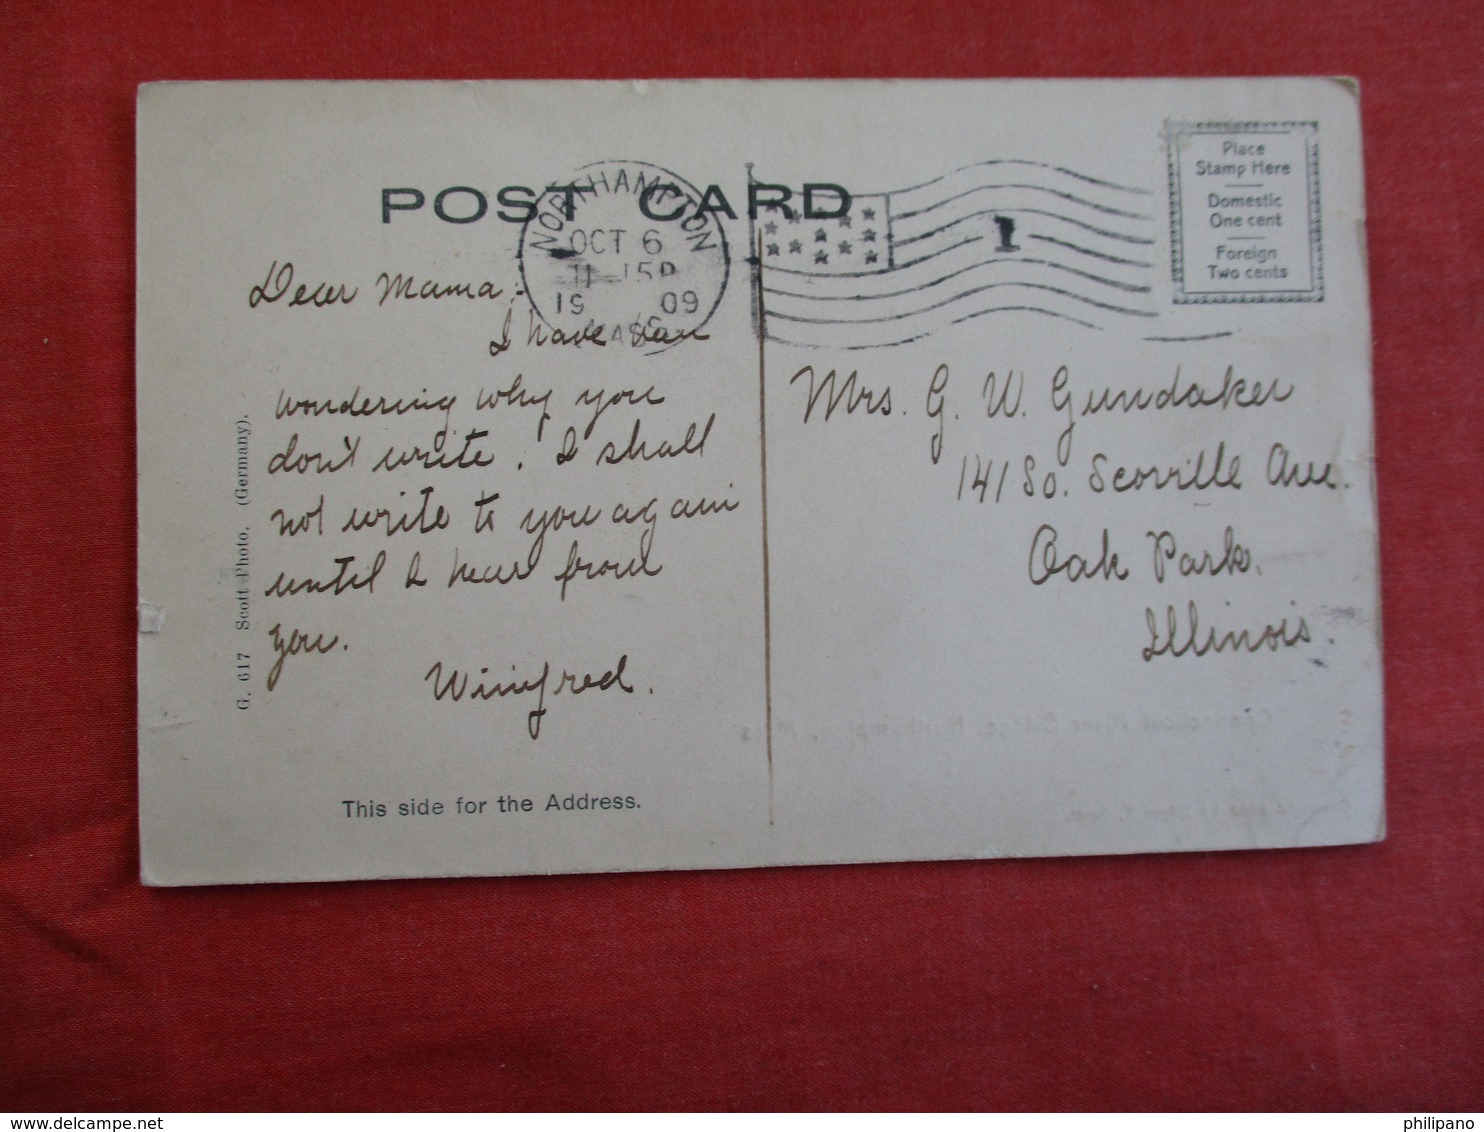 POST CARD
NORTHAMPTON
OCT 6
11-15P
1909
MASS.
1
Place
Stamp Here
Domestic
One cent
Foreign
Two cents
Dear Mama,-
I have been
wondering why you
don't write. I shall
not write to you again
until I hear from
you.
Winifred.
Mrs. G. W. Gundaker
141 So. Scoville Ave.
Oak Park.
Illinois.
G. 617 Scott Photo. (Germany).
This side for the Address.
philipano